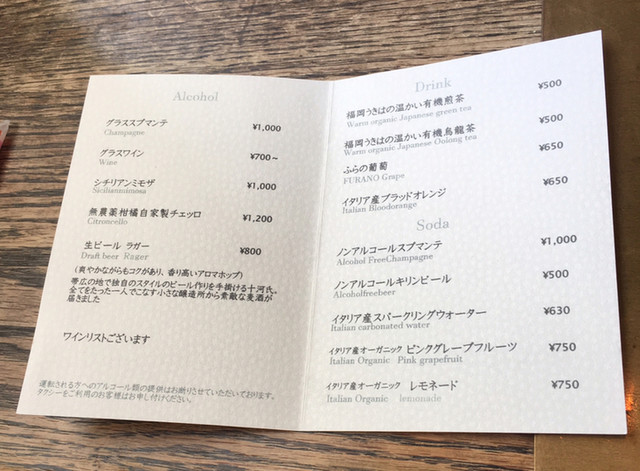 Alcohol
グラススプマンテ ¥1,000
Champagne
グラスワイン ¥700～
Wine
シチリアンミモザ ¥1,000
Sicilianmimosa
無農薬柑橘自家製チェッロ ¥1,200
Citroncello
生ビール ラガー ¥800
Draft beer Rager
(爽やかながらもコクがあり、香り高いアロマホップ)
帯広の地で独自のスタイルのビール作りを手掛ける十河氏。
全てをたった一人でこなす小さな醸造所から素敵な麦酒が
届きました
ワインリストございます
運転される方へのアルコール類の提供はお断りさせていただいております。
タクシーをご利用のお客様はお申し付けください。
Drink
福岡うきはの温かい有機煎茶 ¥500
Warm organic Japanese green tea
福岡うきはの温かい有機烏龍茶 ¥500
Warm organic Japanese Oolong tea
ふらの葡萄 ¥650
FURANO Grape
イタリア産ブラッドオレンジ ¥650
Italian Bloodorange
Soda
ノンアルコールスプマンテ ¥1,000
Alcohol FreeChampagne
ノンアルコールキリンビール ¥500
Alcoholfreebeer
イタリア産スパークリングウォーター ¥630
Italian carbonated water
イタリア産オーガニック ピンクグレープフルーツ ¥750
Italian Organic Pink grapefruit
イタリア産オーガニック レモネード ¥750
Italian Organic lemonade